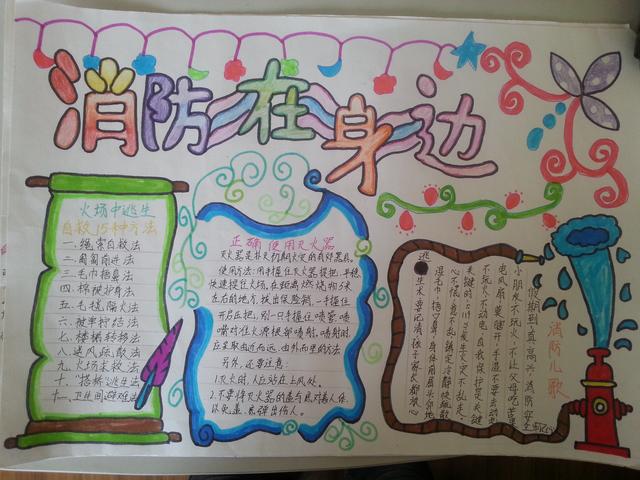 消防在身边
火场中逃生
自救15种方法
一.绳索自救法
二.匍匐前进法
三.毛巾捂鼻法
四.棉被护身法
五.毛毯隔火法
六.被单拧结法
七.楼梯转移法
八.逆风疏散法
九.火场求救法
十.搭桥逃生法
十一.卫生间避难法
正确使用灭火器
灭火器是扑灭初期火灾的有效器具。
使用方法:用手握住灭火器提把,平稳、
快速提往火场,在距离燃烧物5米
左右的地方,拔出保险销,一手握住
开启压把,另一手握住喷管,喷
嘴对准火源根部喷射。喷射时,
应采取由近而远、由外而里的方法
另外,还要注意:
1.灭火时,人应站在上风处。
2.不要将灭火器的盖与底对着人体,
以免盖、底弹出伤人。
消防儿歌
假期到,真高兴,消防安全
小朋友,不玩火,不让父母吃苦果
电风扇,莫瞎开,手湿不要去动电
不玩火,不动电,自我保护是关键
关键的:119,发生火灾不乱走,
心不慌,意不乱,镇定冷静快疏散
湿毛巾,捂口鼻,身体用匍头邻地
逃生术,要记清,孩子家长都放心